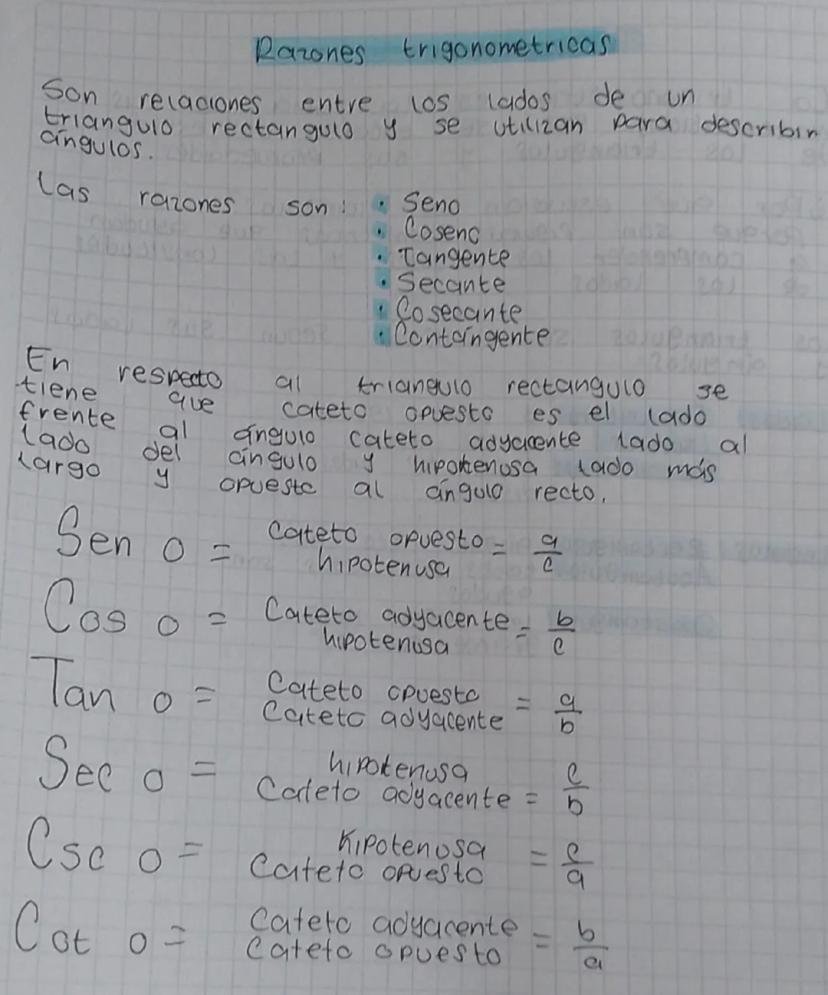 Razones trigonometricas
Son relaciones entre los lados de un
triangulo rectangulo y se utilizan para describir
ángulos.
Las razones son: • Seno
• Coseno
• Tangente
• Secante
• Cosecante
• Contangente
En respecto al triangulo rectangulo se
tiene que cateto opuesto es el lado
frente al ángulo cateto adyacente lado al
lado del ángulo y hipotenusa lado más
largo y opuesto al ángulo recto.
Sen o = Cateto opuesto / hipotenusa = a/c
Cos o = Cateto adyacente / hipotenusa = b/c
Tan o = Cateto opuesto / Cateto adyacente = a/b
Sec o = hipotenusa / Cateto adyacente = c/b
Csc o = hipotenosa / Cateto opuesto = c/a
Cot o = Cateto adyacente / Cateto opuesto = b/a